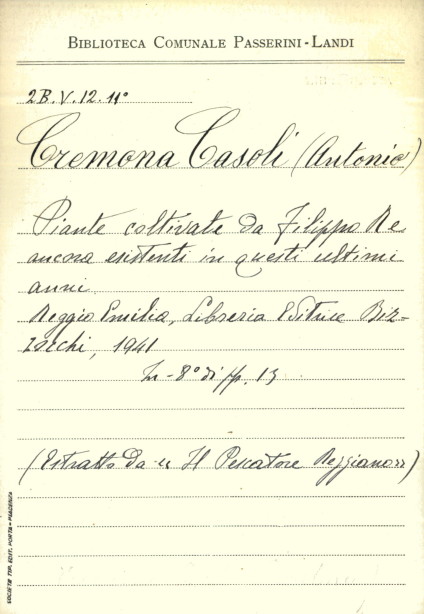 BIBLIOTECA COMUNALE PASSERINI-LANDI
2B.V.12.11°
Cremona Casoli (Antonio)
Piante coltivate da Filippo Re
ancora esistenti in questi ultimi
anni.
Reggio Emilia, Libreria Editrice Biz-
zocchi, 1941
In-8° di pp. 15
(Estratto da "Il Pescatore Reggiano")
SOCIETÀ TIP. EDIT. PORTA - PIACENZA